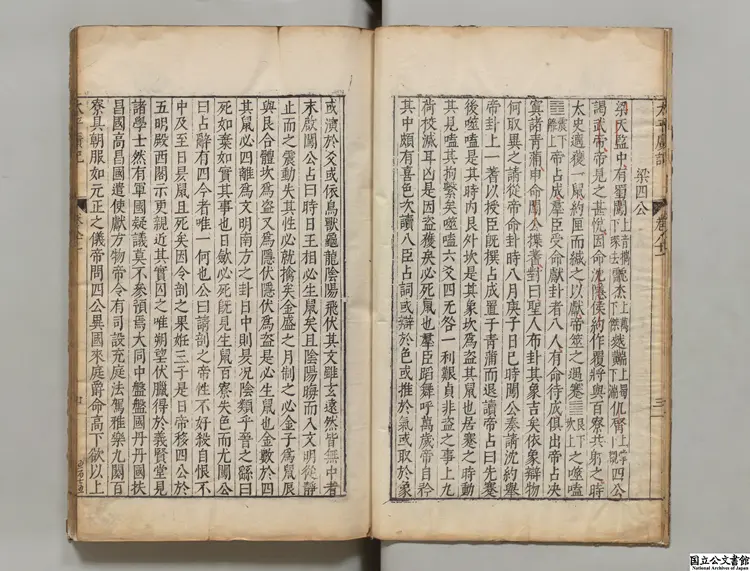 太平廣記
卷八十一
三
梁四公
梁天監中有蜀闖上音携杰上萬下傑䴰湍上蜀下湍仉肾上掌下覩四公
謁武帝帝見之甚悅因命沈隱侯約作覆將與百寮共射之時
太史適獲一鼠約匣而緘之以獻帝筮之遇蹇艮下坎上之噬嗑
震下離上帝占成羣臣受命獻卦者八人有命待成俱出帝占决
寘諸青蒲申命闖公揲蓍對曰聖人布卦其象吉矣依象辯物
何取異之請從帝命卦時八月庚子日巳時闖公奏請沈約舉
帝卦上一蓍以授臣旣撰占成置于青蒲而退讀帝占曰先蹇
後噬嗑是其時内艮外坎是其象坎爲盜其鼠也居蹇之時動
其見嗑其拘繫矣噬嗑六爻四无咎一利艱貞非盜之事上九
荷校滅耳凶是因盜獲戾必死鼠也羣臣蹈舞呼萬歲帝自矜
其中頗有喜色次讀八臣占詞或辯於色或推於氣或取於象
或演於爻或依鳥獸龜龍陰陽飛伏其文雖玄遠然皆無中者
末啟闖公占曰時日王相必生鼠矣且陰陽晦而入文明從靜
止而之震動失其性必就擒矣金盛之月制之必金子爲鼠辰
與艮合體坎爲盜又爲隱伏隱伏爲盜是必生鼠也金數於四
其鼠必四離爲文明南方之卦日中則昃况陰類乎晉之繇曰
死如棄如實其事也日斂必死旣見生鼠百寮失色而尤闖公
曰占辭有四今者唯一何也公曰請剖之帝性不好殺自恨不
中及至日昃鼠且死矣因令剖之果姙三子是日帝移四公於
五明殿西閣示更親近其實囚之唯朔望伏臘得於義賢堂見
諸學士然有軍國疑議莫不參預焉大同中盤盤國丹丹國扶
昌國高昌國遣使獻方物帝令有司設充庭法駕雅樂九闋百
寮具朝服如元正之儀帝問四公異國來庭爵命高下欲以上
太平廣記
卷八十一
国立公文書館
National Archives of Japan